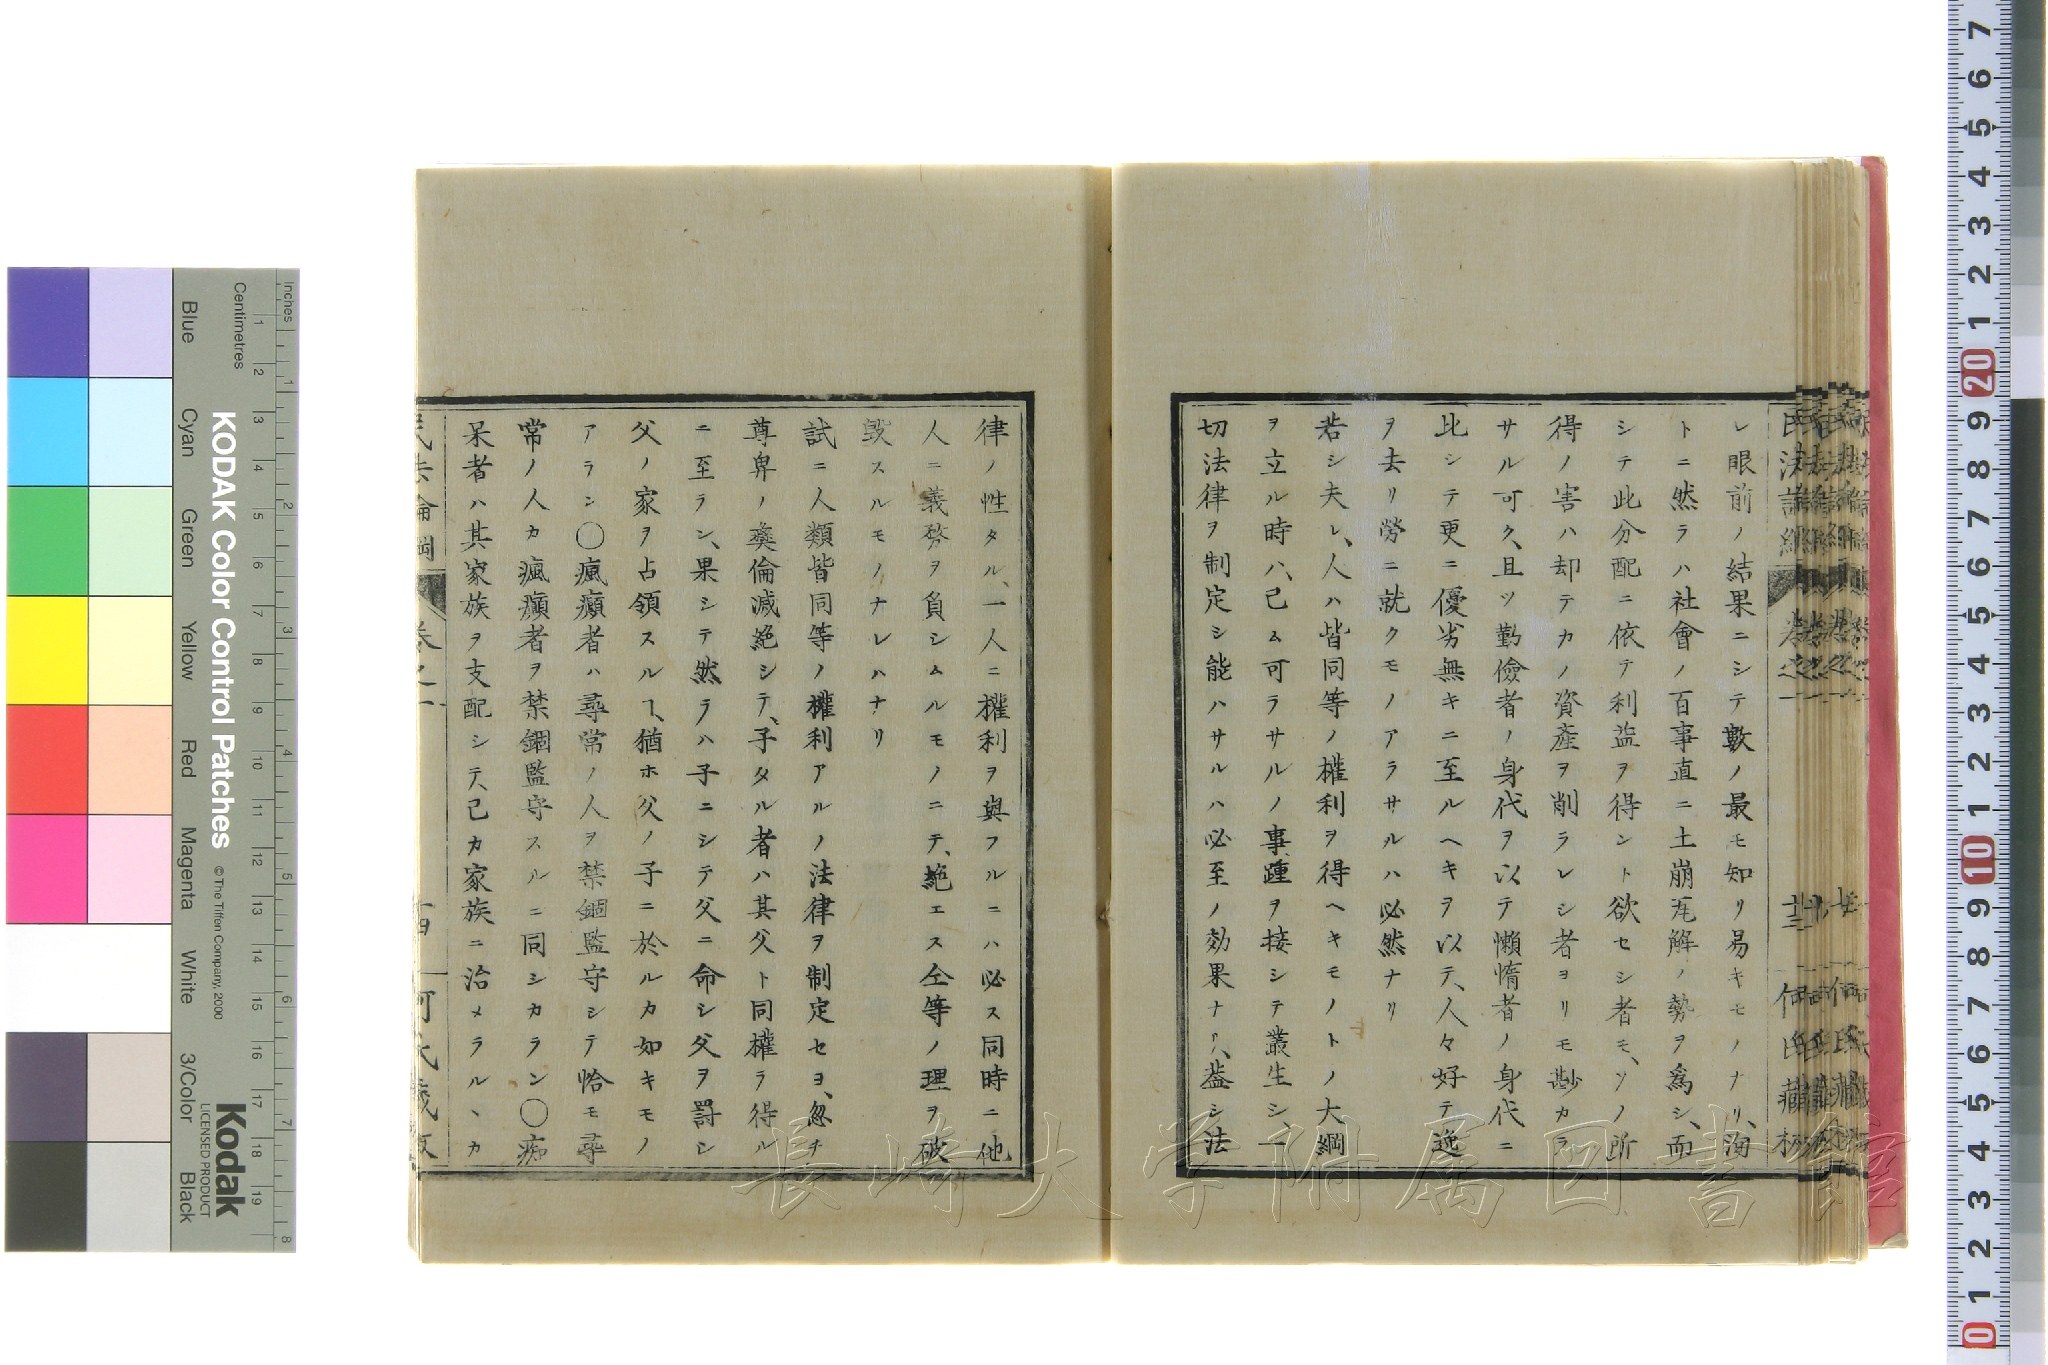 レ眼前ノ結果ニシテ數ノ最モ知リ易キモノナリ、洵
トニ然ラハ社會ノ百事直ニ土崩瓦解ノ勢ヲ爲シ、而
シテ此分配ニ依テ利益ヲ得ント欲セシ者モ、ソノ所
得ノ害ハ却テカノ資產ヲ削ラレシ者ヨリモ尠カラ
サル可ク、且ツ勤儉者ノ身代ヲ以テ懶惰者ノ身代ニ
比シテ更ニ優劣無キニ至ルヘキヲ以テ、人々好テ逸
ヲ去リ勞ニ就クモノアラサルハ必然ナリ
若シ夫レ、人ハ皆同等ノ權利ヲ得ヘキモノトノ大綱
ヲ立ル時ハ、已ム可ラサルノ事、踵ヲ接シテ叢生シ、一
切法律ヲ制定シ能ハサルハ必至ノ効果ナリ、蓋シ法
律ノ性タル、一人ニ權利ヲ與フルニハ必ス同時ニ他
人ニ義務ヲ負シムルモノニテ、絶エス仝等ノ理ヲ破
毀スルモノナレハナリ
試ニ人類皆同等ノ權利アルノ法律ヲ制定セヨ、忽チ
尊卑ノ彜倫滅絶シテ、子タル者ハ其父ト同權ラ得ル
ニ至ラン、果シテ然ラハ子ニシテ父ニ命シ父ヲ罸シ
父ノ家ヲ占領スルヿ、猶ホ父ノ子ニ於ルカ如キモノ
アラン〇瘋癲者ハ尋常ノ人ヲ禁錮監守シテ恰モ尋
常ノ人カ瘋癲者ヲ禁錮監守スルニ同シカラン〇痴
呆者ハ其家族ヲ支配シテ、己カ家族ニ治メラルヽカ
民法論綱 卷之一
何氏藏板
Inches
Centimetres
KODAK Color Control Patches
© The Tiffen Company, 2000
Kodak
LICENSED PRODUCT
Blue
Cyan
Green
Yellow
Red
Magenta
White
3/Color
Black
長崎大学附属図書館